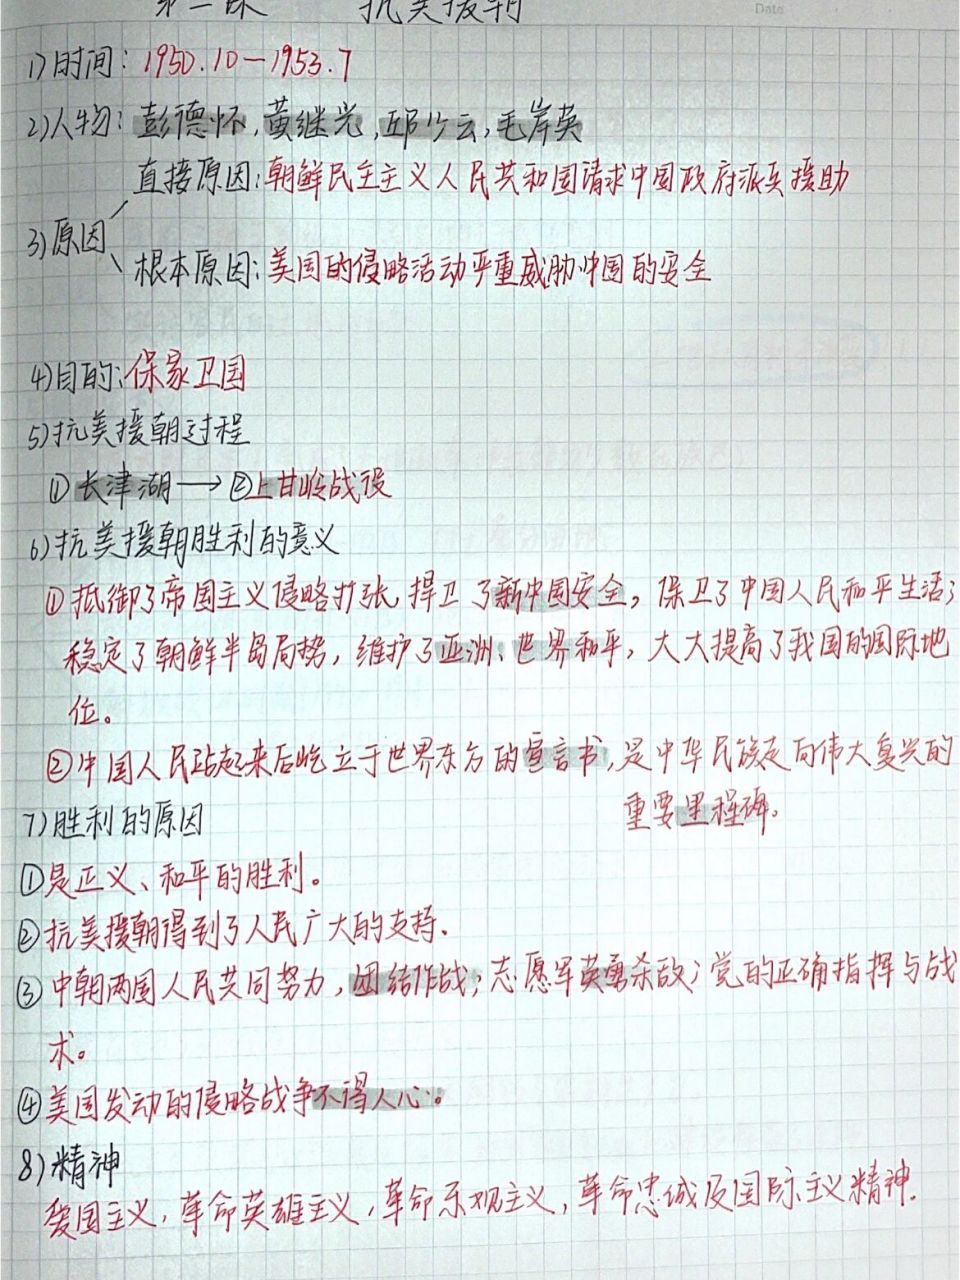 第二课 抗美援朝
Date
1)时间:1950.10—1953.7
2)人物:彭德怀,黄继光,邱少云,毛岸英
直接原因:朝鲜民主主义人民共和国请求中国政府派兵援助
3)原因
根本原因:美国的侵略活动严重威胁中国的安全
4)目的:保家卫国
5)抗美援朝过程
①长津湖→②上甘岭战役
6)抗美援朝胜利的意义
①抵御了帝国主义侵略扩张,捍卫了新中国安全,保卫了中国人民和平生活;
稳定了朝鲜半岛局势,维护了亚洲、世界和平,大大提高了我国的国际地
位。
②中国人民站起来后屹立于世界东方的宣言书,是中华民族走向伟大复兴的
重要里程碑.
7)胜利的原因
①是正义、和平的胜利。
②抗美援朝得到了人民广大的支持.
③中朝两国人民共同努力,团结作战;志愿军英勇杀敌;党的正确指挥与战
术。
④美国发动的侵略战争不得人心。
8)精神
爱国主义,革命英雄主义,革命乐观主义,革命忠诚及国际主义精神.